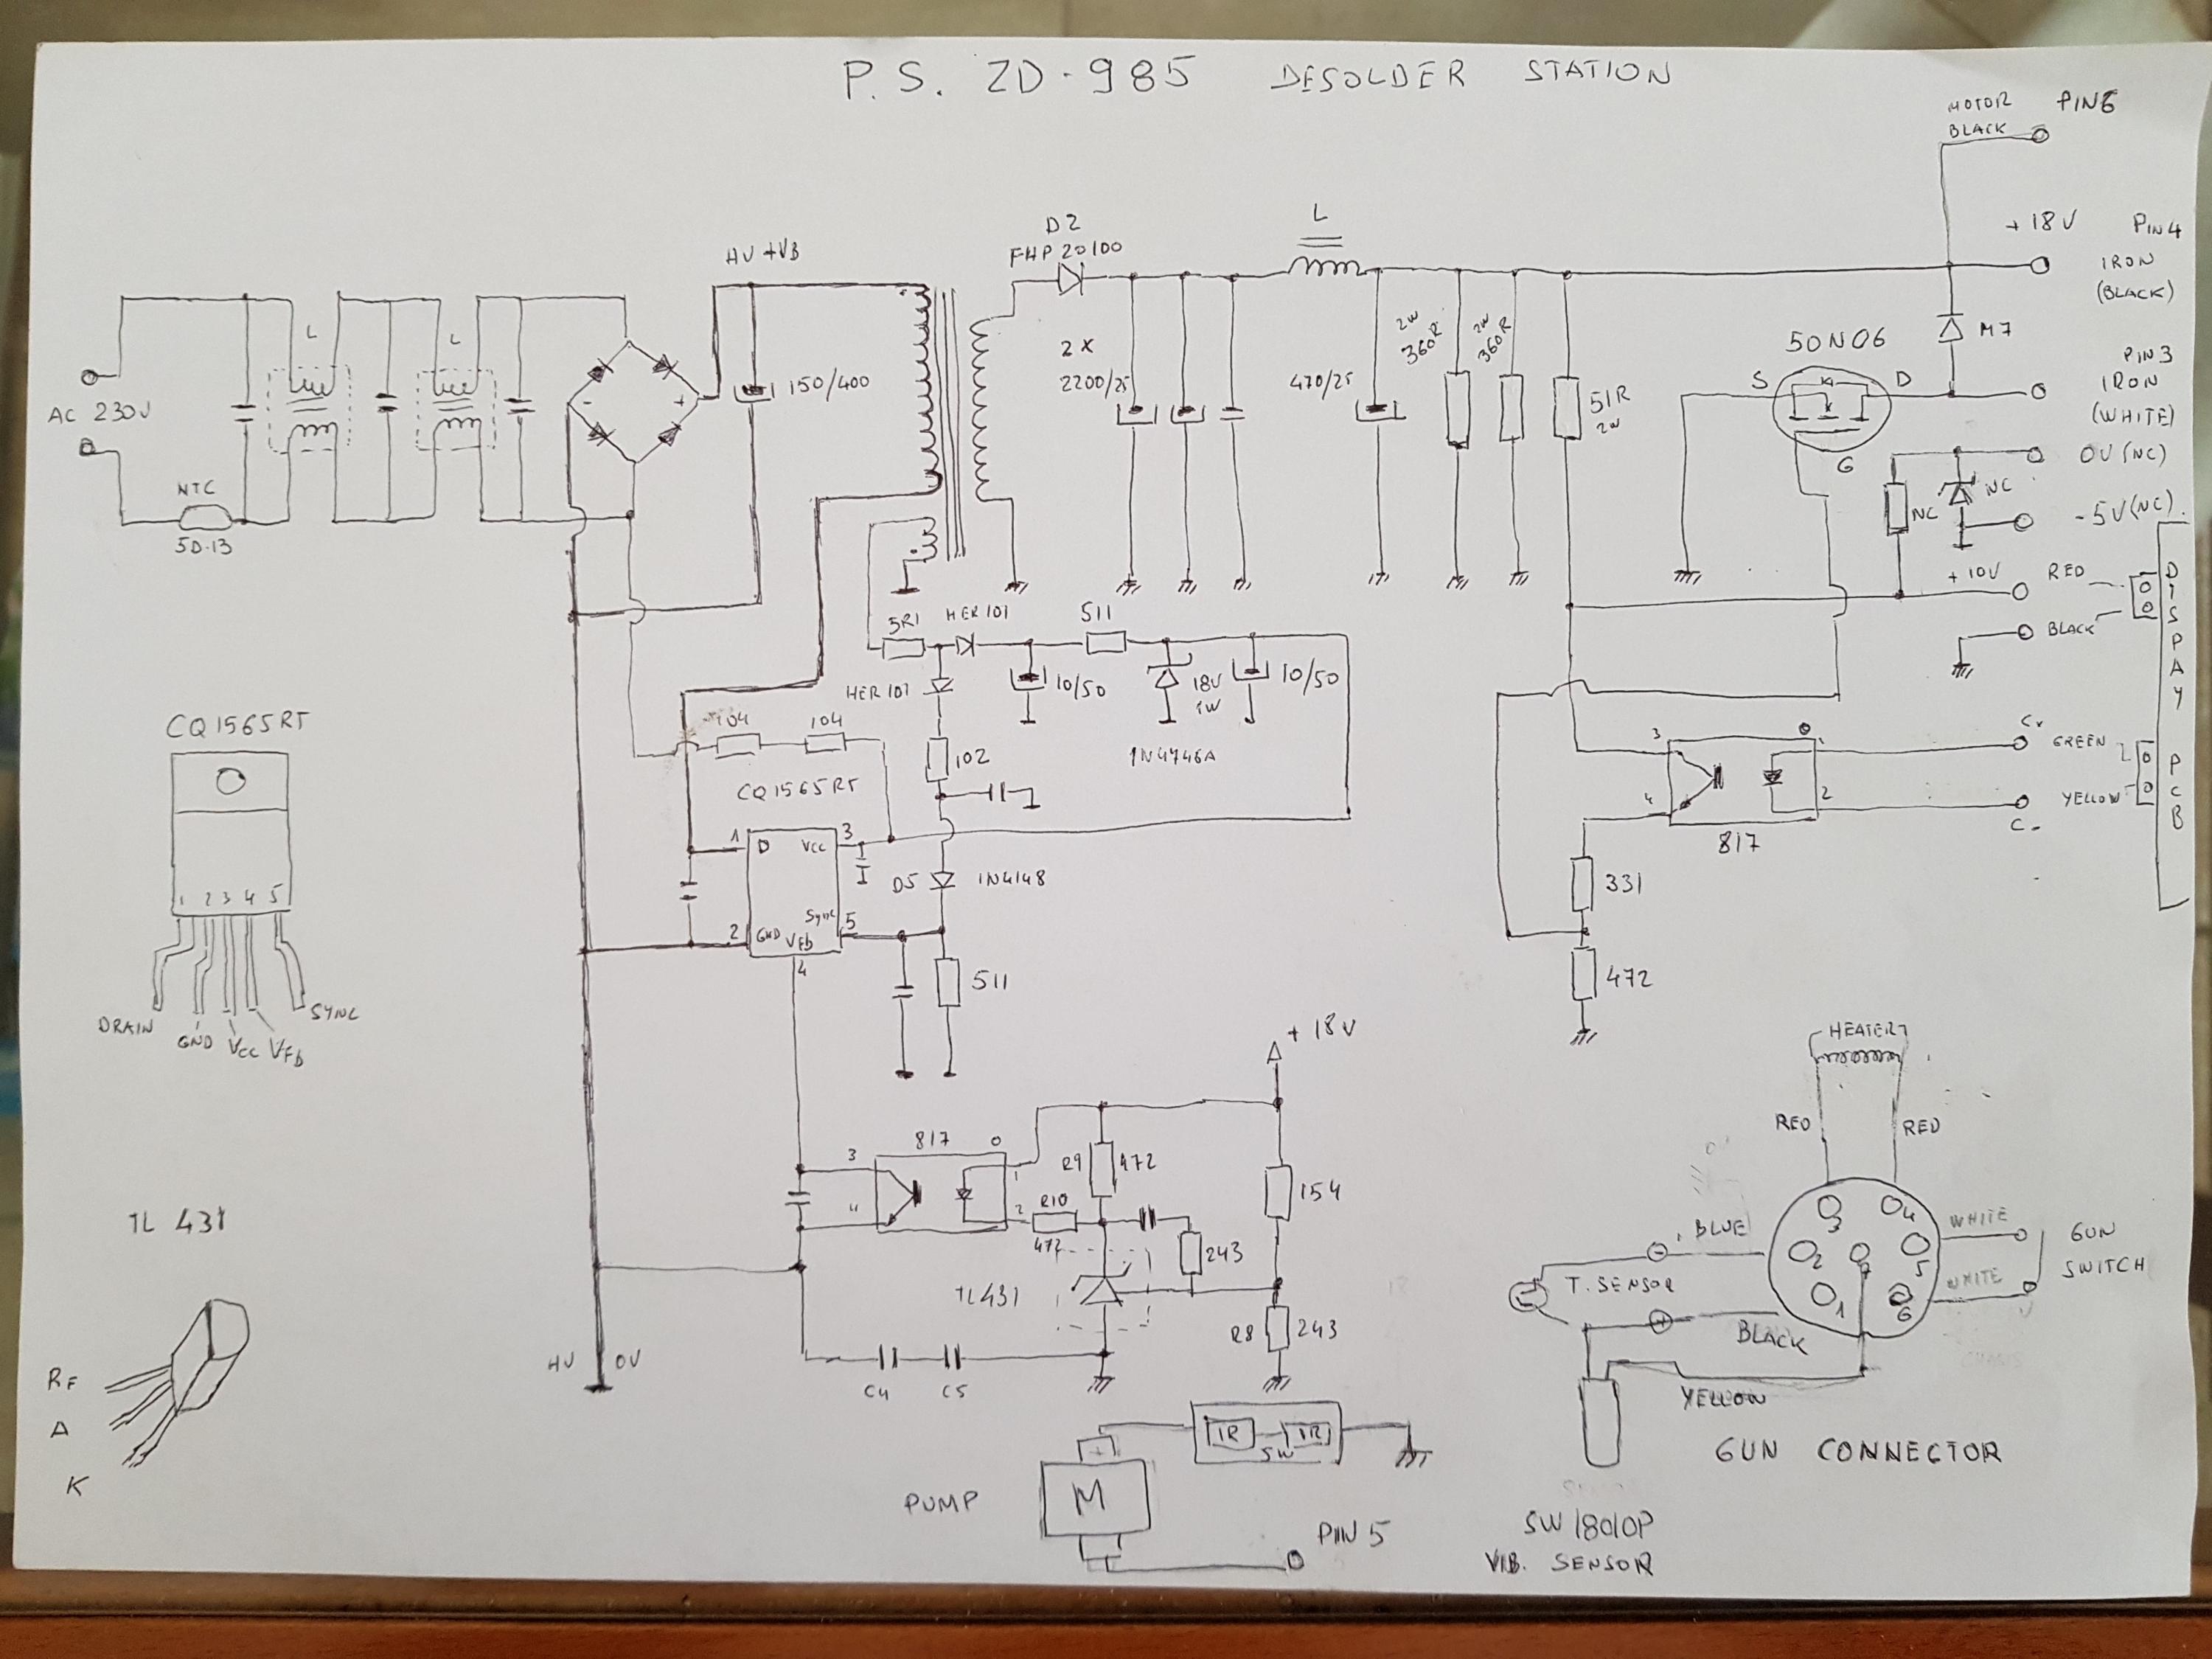 P.S. ZD-985 DESOLDER STATION
MOTOR
BLACK
PIN6
+18V
PIN4
IRON
(BLACK)
M7
50N06
S
D
G
PIN3
IRON
(WHITE)
0V(NC)
NC
NC
-5V(NC)
+10V
RED
BLACK
DISPAY PCB
C+
GREEN
YELLOW
C-
D2
FHP20100
L
HV +VB
L
L
AC 230V
NTC
5D-13
-
+
150/400
2X
2200/25
470/25
2W
360R
2W
360R
51R
2W
5R1
HER101
511
HER101
10/50
18V
1W
10/50
1N4746A
104
104
102
CQ1565RT
CQ1565RT
1
D
VCC
3
2
GND
VFb
Sync
5
4
D5
1N4148
511
1 2 3 4 5
DRAIN
GND
VCC
VFb
SYNC
3
4
1
2
817
331
472
+18V
817
3
4
1
2
R9
472
R10
472
154
243
TL431
R8
243
C4
C5
HV
0V
TL 431
RF
A
K
HEATER
RED
RED
BLUE
T. SENSOR
BLACK
YELLOW
3
4
2
7
5
1
6
WHITE
WHITE
GUN
SWITCH
GUN CONNECTOR
SW18010P
VIB. SENSOR
PUMP
M
1R
SW
1R
PIN 5